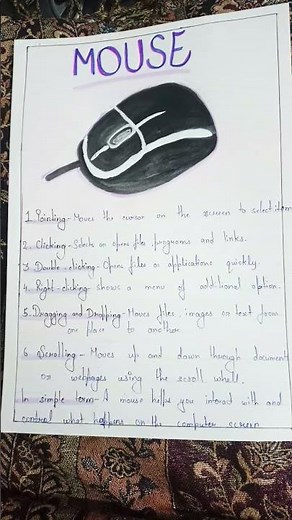 MOUSE
1. Pointing - Moves the cursor on the screen to select item
2. Clicking - Selects or opens files programs and links.
3. Double clicking - Opens files or applications quickly.
4. Right-clicking shows a menu of additional option.
5. Dragging and Dropping - Moves files, images or text form
one place to another
6. Scrolling - Moves up and down through document
or webpages using the scroll whell.
In simple term - A mouse helps you interact with and
control what happens on the computer screen